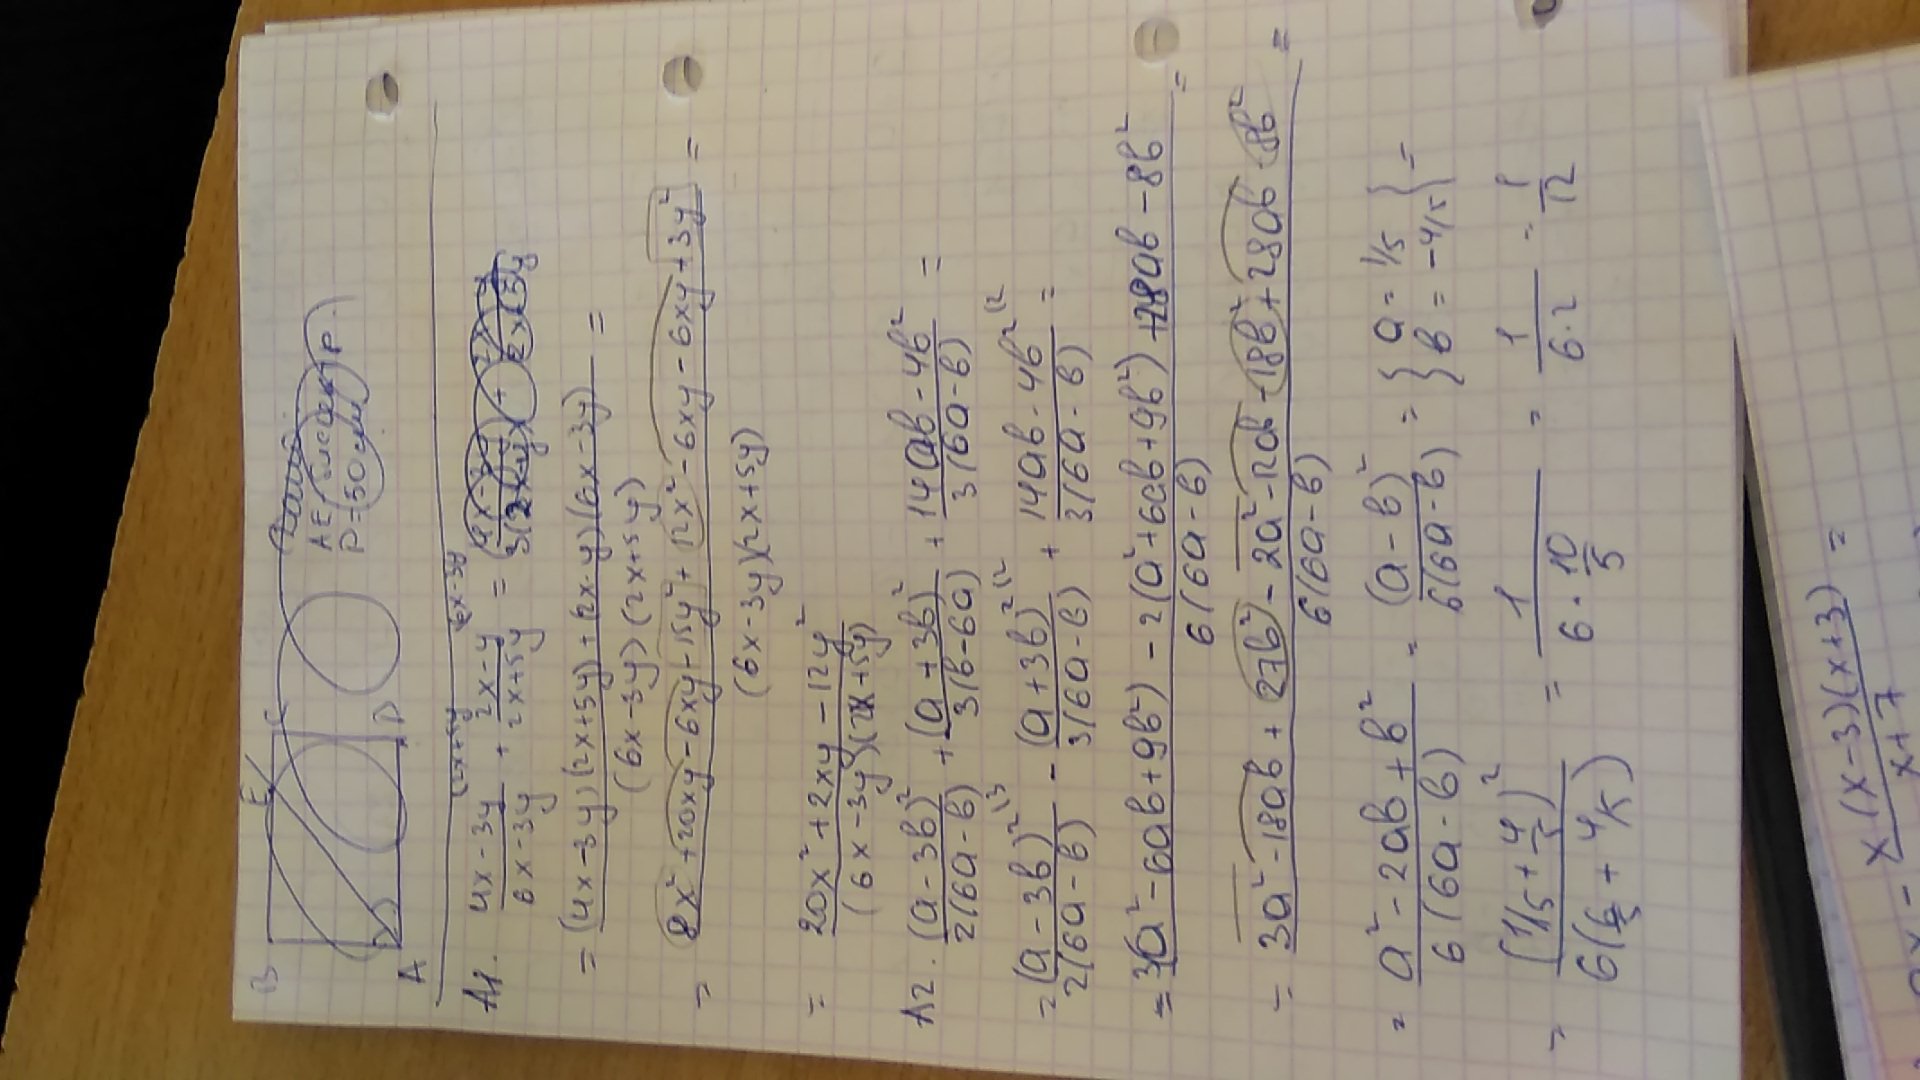 B E C
A D
AE
P=150
A1. (4x-3y)/(6x-3y) + (2x-y)/(2x+5y) =
= ((4x-3y)(2x+5y)+(2x-y)(6x-3y))/((6x-3y)(2x+5y)) =
= (8x²+20xy-6xy-15y²+12x²-6xy-6xy+3y²)/((6x-3y)(2x+5y)) =
= (20x²+2xy-12y²)/((6x-3y)(2x+5y))
A2. (a-3b)²/(2(6a-b)) + (a+3b)²/(3(b-6a)) + (14ab-4b²)/(3(6a-b)) =
= (a-3b)²/(2(6a-b)) - (a+3b)²/(3(6a-b)) + (14ab-4b²)/(3(6a-b)) =
= (3(a²-6ab+9b²)-2(a²+6ab+9b²)+28ab-8b²)/(6(6a-b)) =
= (3a²-18ab+27b²-2a²-12ab-18b²+28ab-8b²)/(6(6a-b)) =
= (a²-2ab+b²)/(6(6a-b)) = (a-b)²/(6(6a-b)) = {a=1/5 b=-4/5} =
= (1/5+4/5)²/(6(6/5+4/5)) = 1/(6·10/5) = 1/(6·2) = 1/12
x(x-3)(x+3)/(x+7) =